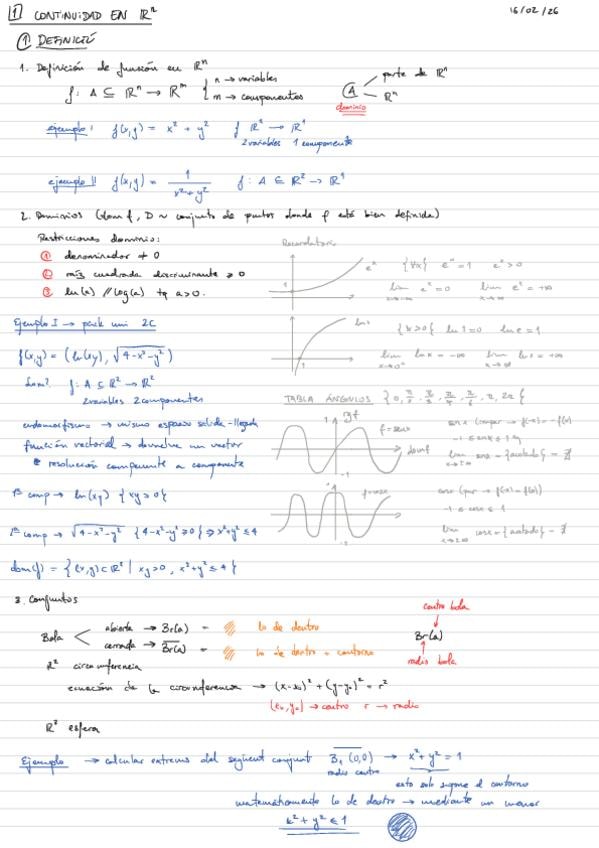 1 CONTINUIDAD EN ℝⁿ 16/02/26
① DEFINICIÓ
1. Definición de función en ℝⁿ
f: A ⊆ ℝⁿ → ℝᵐ { n → variables
m → componentes
A parte de ℝⁿ
ℝⁿ
dominio
ejemplo I f(x,y) = x² + y² f ℝ² → ℝ¹
2 variables 1 componente
ejemplo II f(x,y) = 1 / x²+y² f: A ⊆ ℝ² → ℝ¹
2. Dominios (dom f, D ~ conjunto de puntos donde f está bien definida)
Restricciones dominio:
① denominador ≠ 0
② raíz cuadrada discriminante ≥ 0
③ ln(a) // log(a) tq a>0.
Recordatorio
eˣ {∀x} e⁰ = 1 eˣ > 0
lim x→-∞ eˣ = 0 lim x→∞ eˣ = +∞
ln x {x>0} ln 1 = 0 ln e = 1
lim x→0⁺ ln x = -∞ lim x→∞ ln x = +∞
Ejemplo I → pack uni 2C
f(x,y) = (ln(xy), √4-x²-y²)
dom? f: A ⊆ ℝ² → ℝ²
2 variables 2 componentes
endomorfismo → mismo espacio salida-llegada
función vectorial → devuelve un vector
resolución componente a componente
TABLA ÁNGULOS
f = senx
dom f
-1
sen x impar → f(-x) = -f(x)
-1 ≤ senx ≤ 1
lim senx = {acotado} = ∄
f=cosx
-1
cosx (par → f(-x) = f(x))
-1 ≤ cosx ≤ 1
lim cosx = {acotado} = ∄
1ª comp → ln(xy) {xy>0}
2ª comp → √4-x²-y² {4-x²-y² ≥ 0} ⇒ x²+y² ≤ 4
dom(f) = {(x,y) ⊂ ℝ² | xy>0, x²+y² ≤ 4}
3. Conjuntos
Bola
abierta → Br(a) = lo de dentro
cerrada → Br(a) = lo de dentro + contorno
centro bola
Br(a)
radio bola
ℝ² circunferencia
ecuación de la circunferencia → (x-x₀)² + (y-y₀)² = r²
(x₀,y₀) → centro r → radio
ℝ³ esfera
Ejemplo → calcular extremos del següent conjunt B₁(0,0) → x²+y² = 1
radio centro
esto solo supone el contorno
matemáticamente lo de dentro → mediante un menor
x²+y² ≤ 1